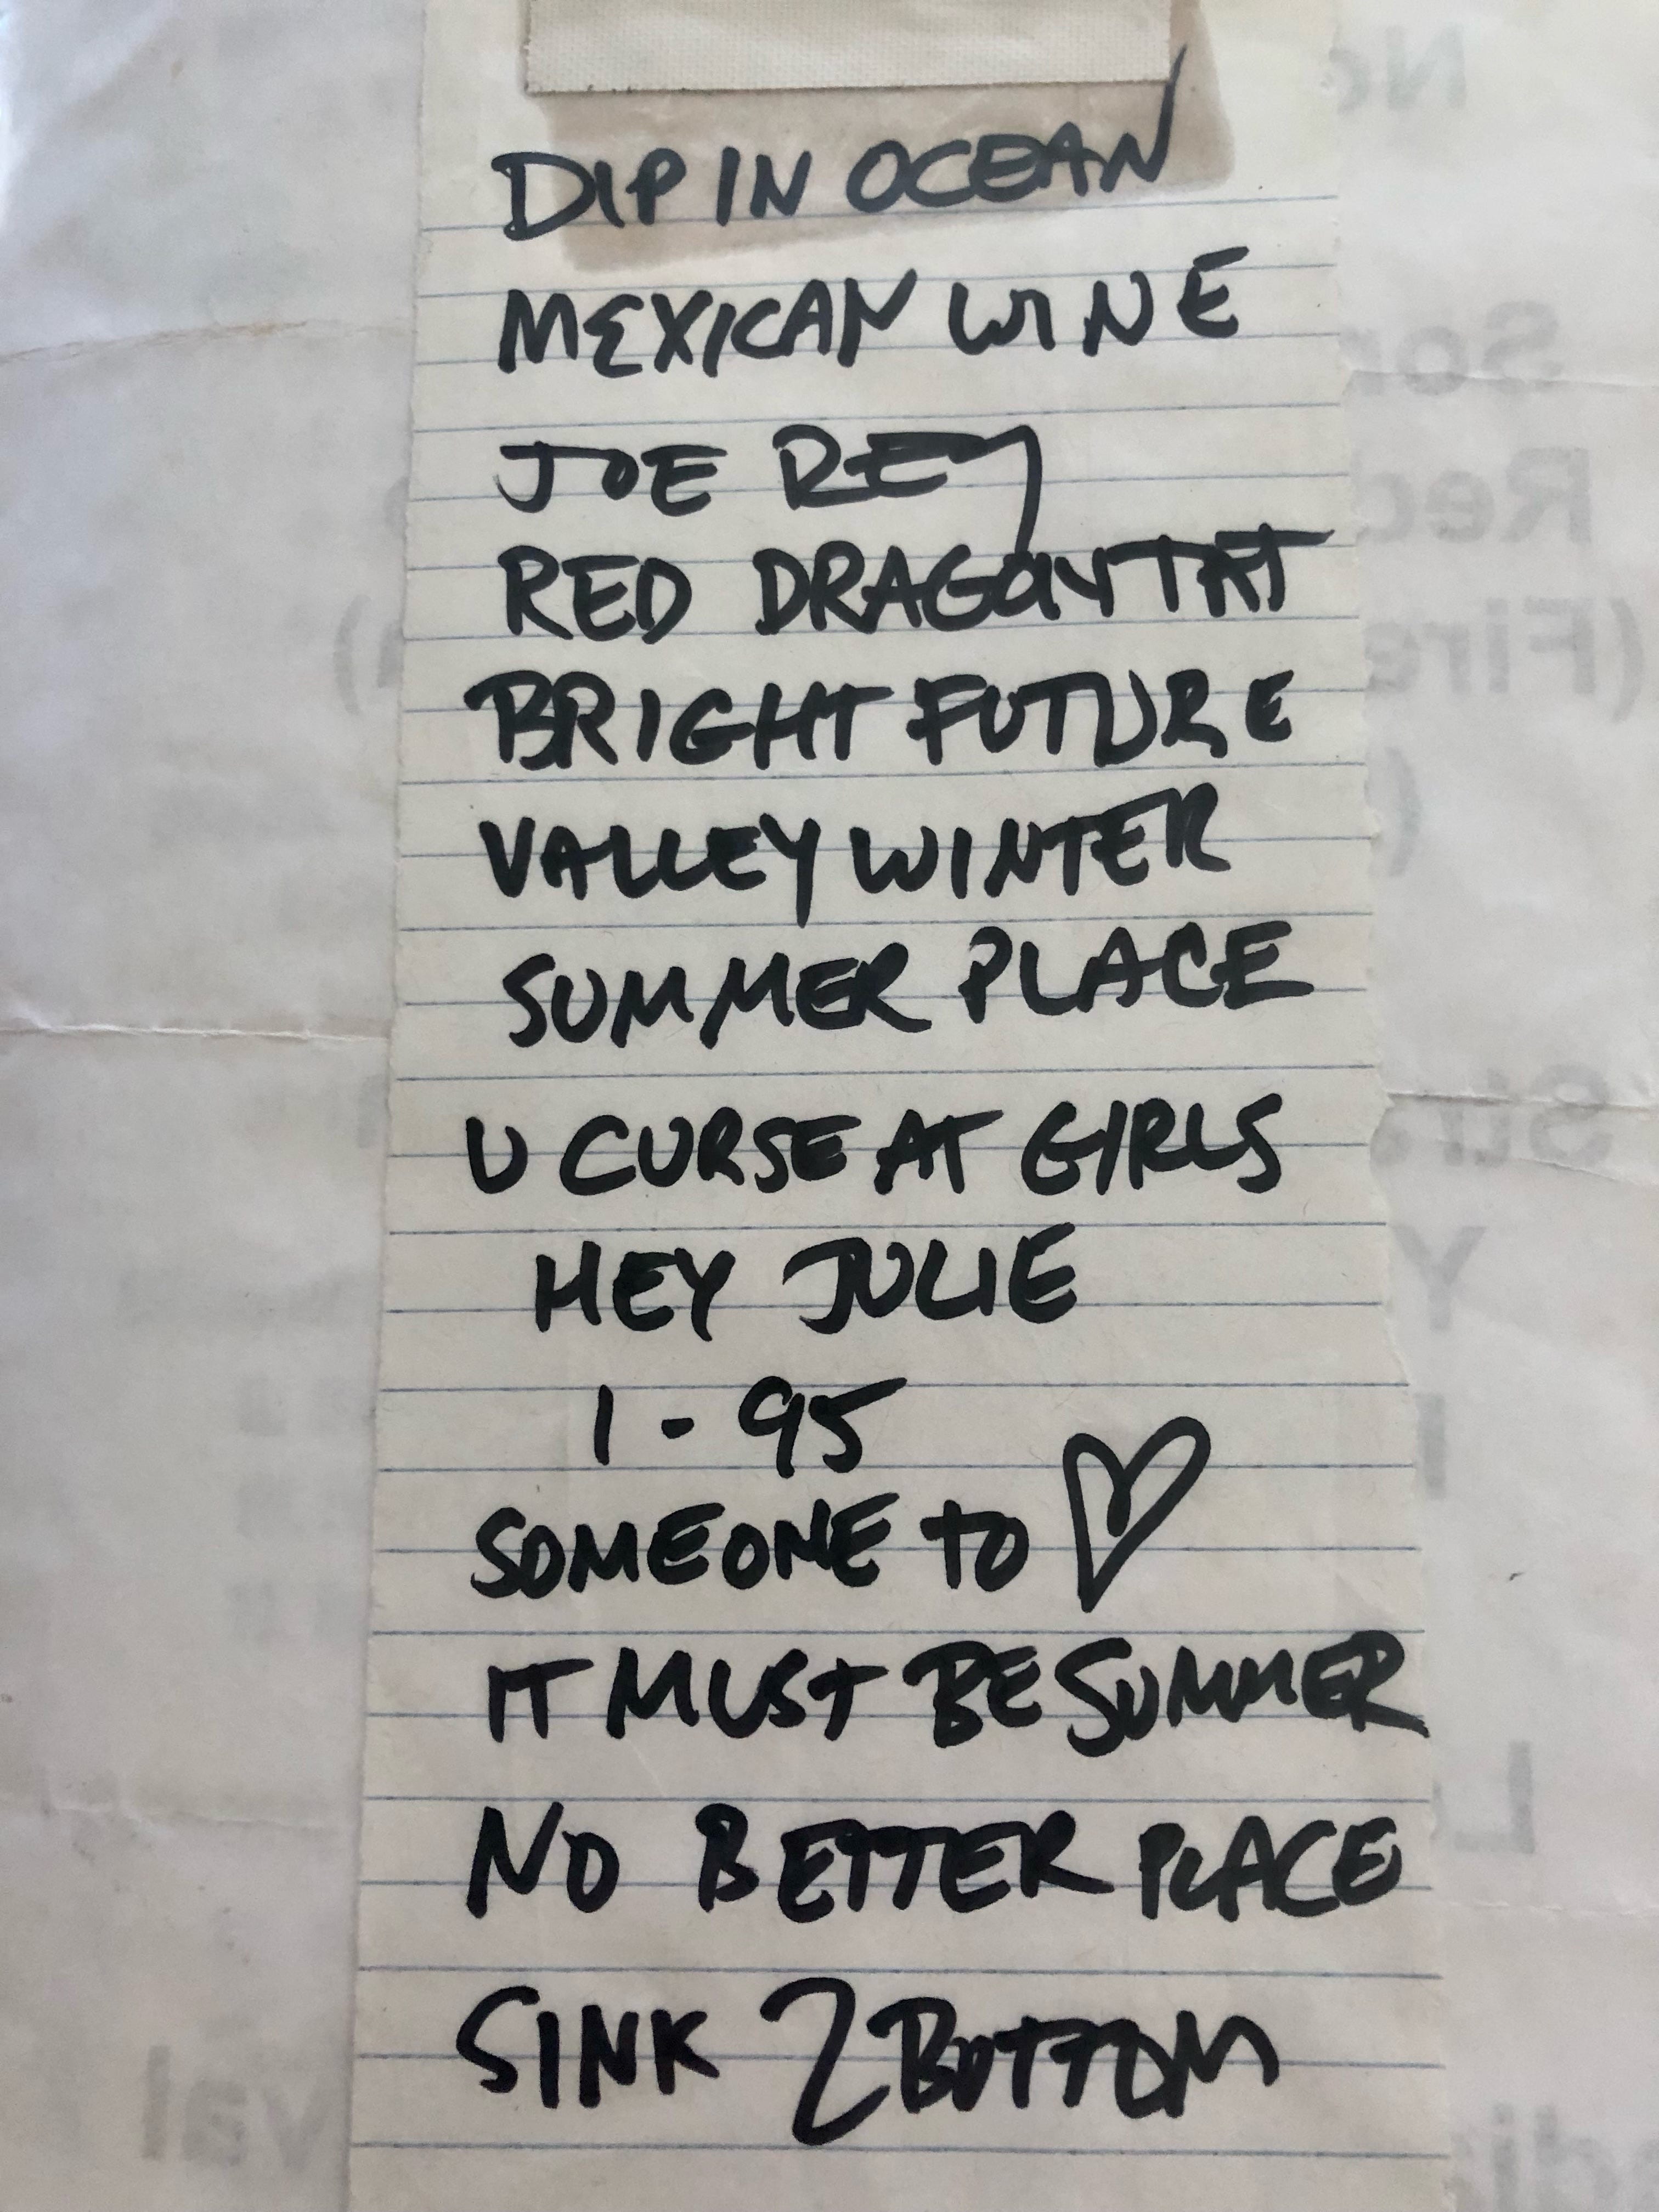 DIP IN OCEAN
MEXICAN WINE
JOE REY
RED DRAGON TAT
BRIGHT FUTURE
VALLEY WINTER
SUMMER PLACE
U CURSE AT GIRLS
HEY JULIE
I-95
SOMEONE TO ♡
IT MUST BE SUMMER
NO BETTER PLACE
SINK 2 BOTTOM